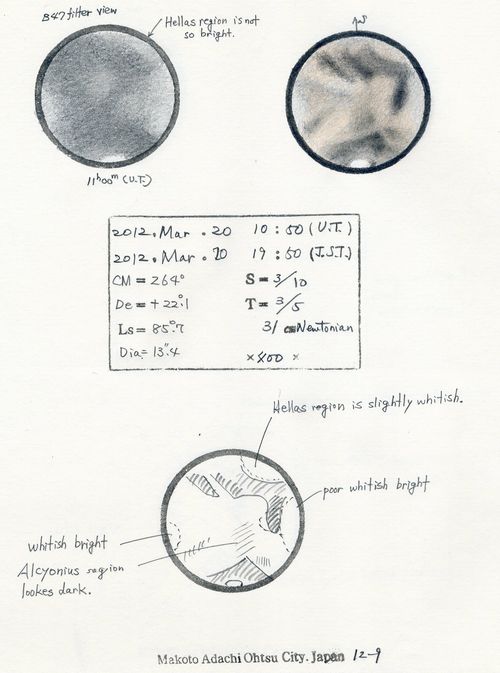 B47 filter view
Hellas region is not
so bright.
11h00m (U.T.)
2012. Mar. 20 10:50 (U.T.)
2012. Mar. 20 19:50 (J.S.T.)
CM = 264° S = 3/10
De = +22°.1 T = 3/5
Ls = 85°.7 31 cm Newtonian
Dia = 13".4 ×400 ×
Hellas region is slightly whitish.
poor whitish bright
whitish bright
Alcyonius region
lookes dark.
Makoto Adachi Ohtsu City. Japan 12-9